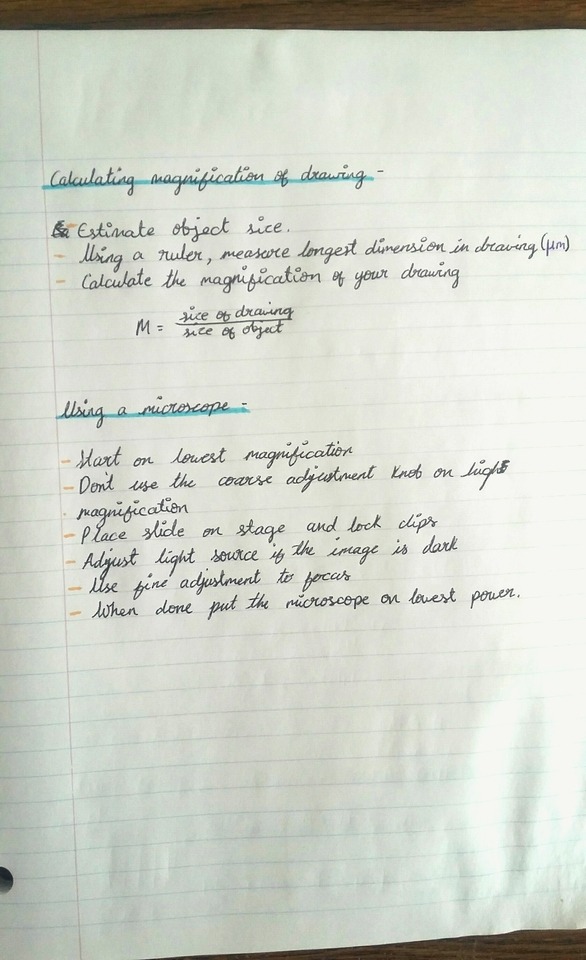 Calculating magnification of drawing -
Estimate object size.
- Using a ruler, measure longest dimension in drawing (μm)
- Calculate the magnification of your drawing
M = size of drawing
size of object
Using a microscope -
- Start on lowest magnification
- Don't use the coarse adjustment knob on high
magnification
- Place slide on stage and lock clips
- Adjust light source if the image is dark
- Use fine adjustment to focus
- When done put the microscope on lowest power.